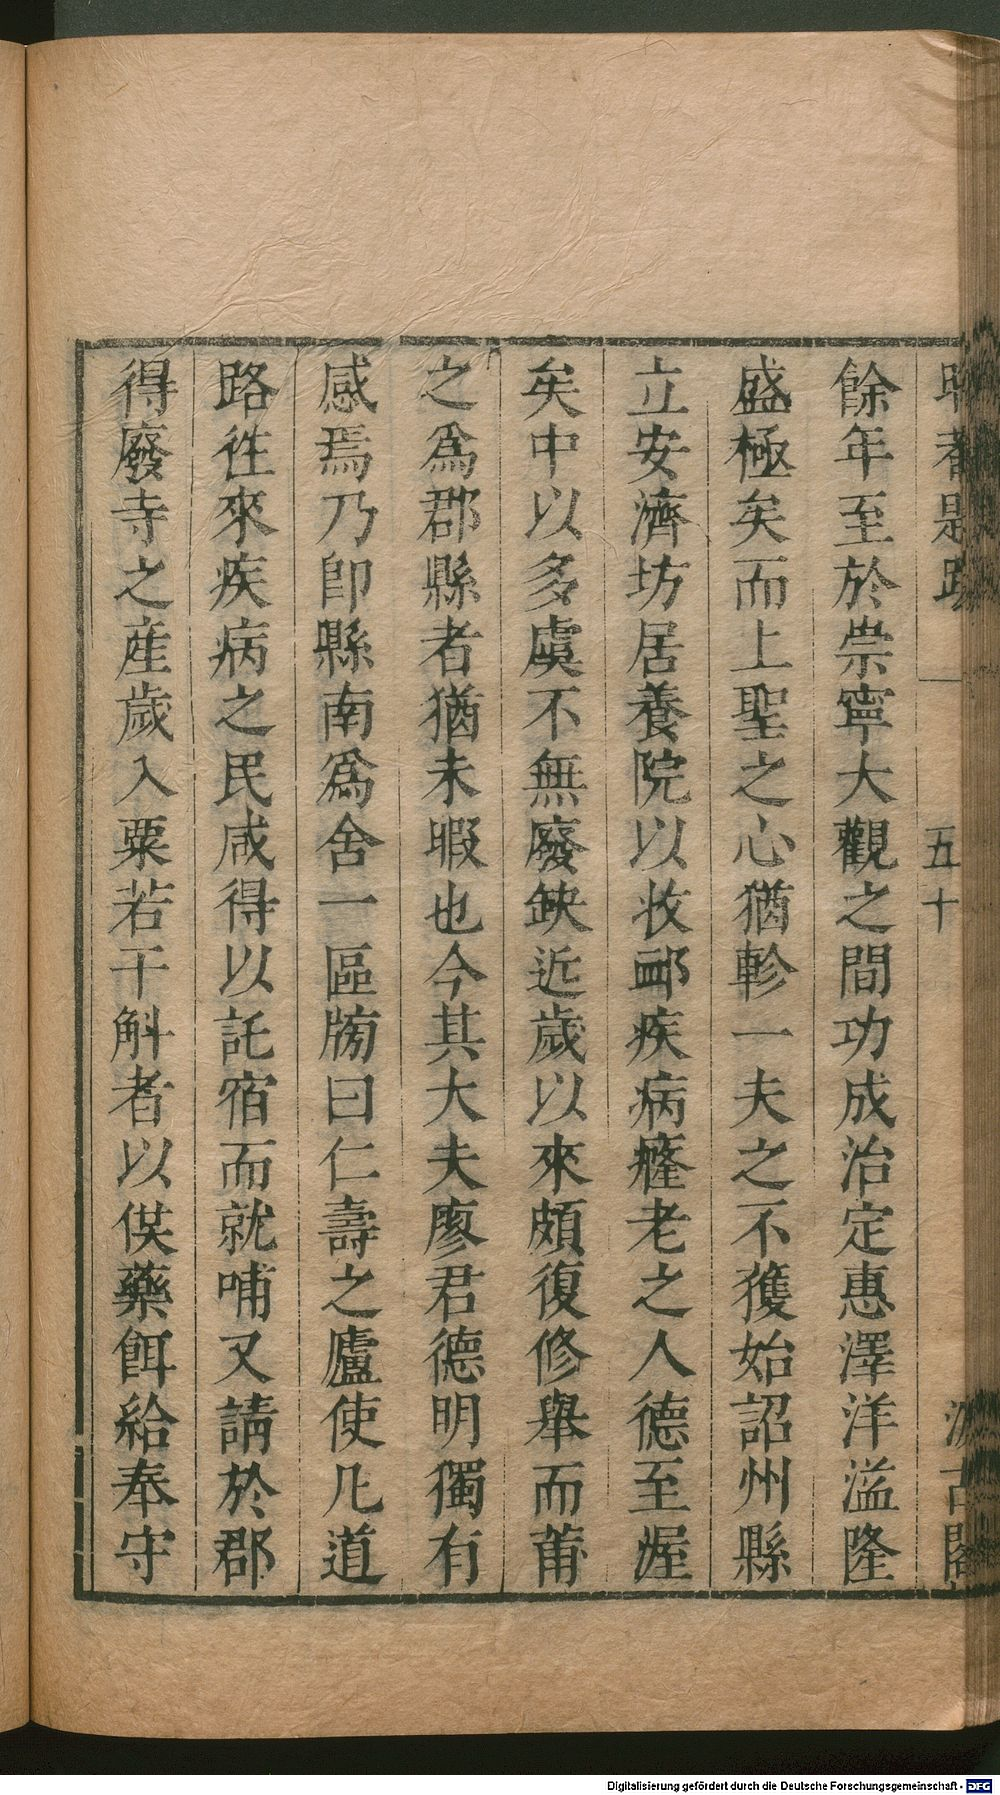 五十
餘年至於崇寧大觀之間功成治定惠澤洋溢隆
盛極矣而上聖之心猶軫一夫之不獲始詔州縣
立安濟坊居養院以收䘏疾病癃老之人德至渥
矣中以多虞不無廢缺近歲以來頗復修舉而莆
之爲郡縣者猶未暇也今其大夫廖君德明獨有
感焉乃卽縣南爲舍一區牓曰仁壽之廬使凡道
路徃來疾病之民咸得以託宿而就哺又請於郡
得廢寺之產歲入粟若干斛者以供藥餌給奉守
Digitalisierung gefördert durch die Deutsche Forschungsgemeinschaft - DFG